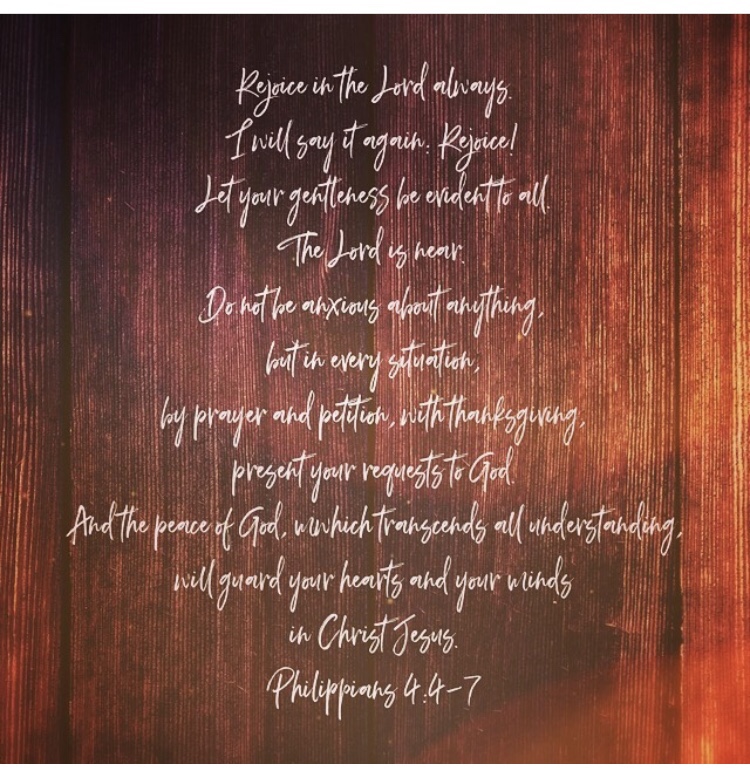 Rejoice in the Lord always.
I will say it again: Rejoice!
Let your gentleness be evident to all.
The Lord is near.
Do not be anxious about anything,
but in every situation,
by prayer and petition, with thanksgiving,
present your requests to God.
And the peace of God, wwhich transcends all understanding,
will guard your hearts and your minds
in Christ Jesus.
Philippians 4:4-7